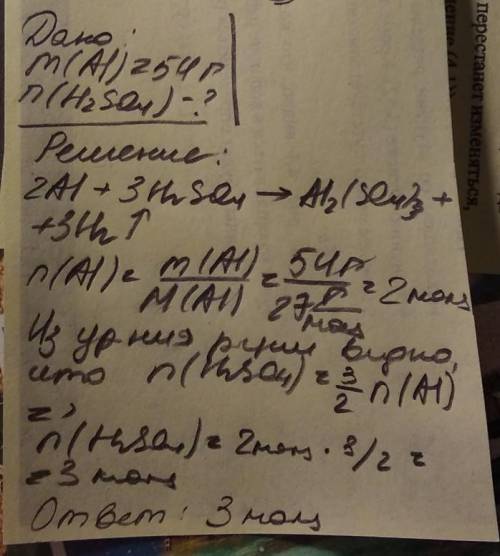 Дано:
m(Al)=54г
n(H₂SO₄)-?
Решение:
2Al + 3H₂SO₄ → Al₂(SO₄)₃ +
+3H₂↑
n(Al) = m(Al)/M(Al) = 54г/27 г/моль = 2моль
Из ур-ния р-ции видно,
что n(H₂SO₄) = 3/2 n(Al)
=>
n(H₂SO₄) = 2моль · 3/2 =
= 3 моль
Ответ: 3 моль
перестанет изменяться,